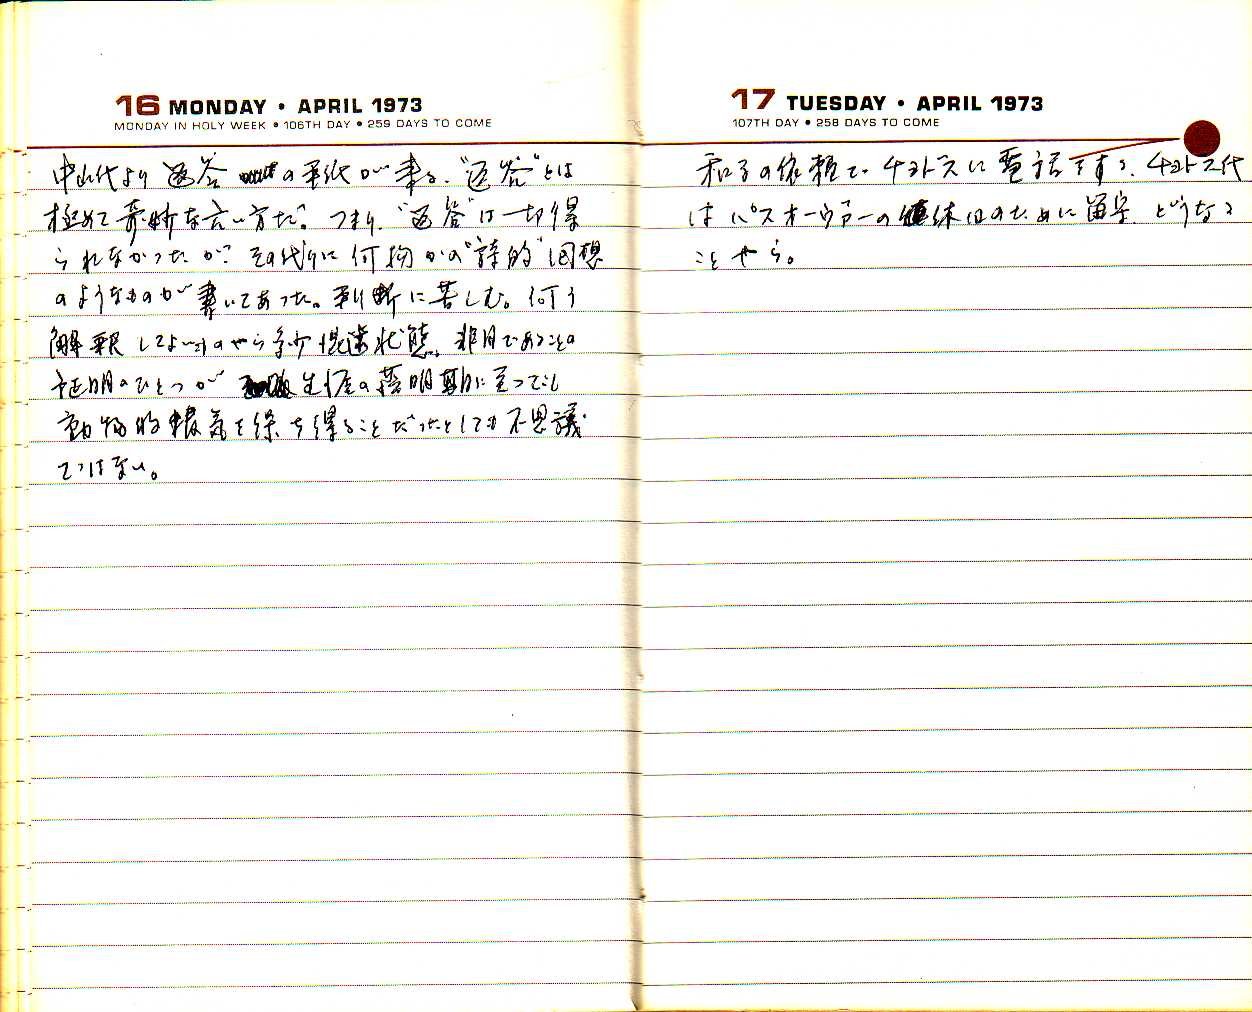 16 MONDAY • APRIL 1973
MONDAY IN HOLY WEEK • 106TH DAY • 259 DAYS TO COME
より返答の手紙が来る。“返答”とは
極めて奇妙な言い方だ。つまり、“返答”は一切得
られなかったが、その代りに何物かの“詩的”回想
のようなものが書いてあった。判断に苦しむ。何う
解釈してよいのやら多少混迷状態。であることの
証明のひとつが 生涯の に至っても
動物的精気を保ち得ることだったとしても不思議
ではない。
17 TUESDAY • APRIL 1973
107TH DAY • 258 DAYS TO COME
和子の依頼で、に電話する。
はパスオーヴァーの休日のために留守。どうなる
ことやら。